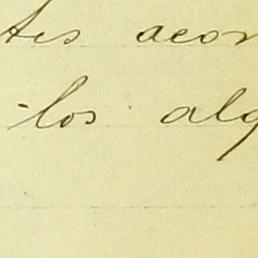 tes acor
-los alg